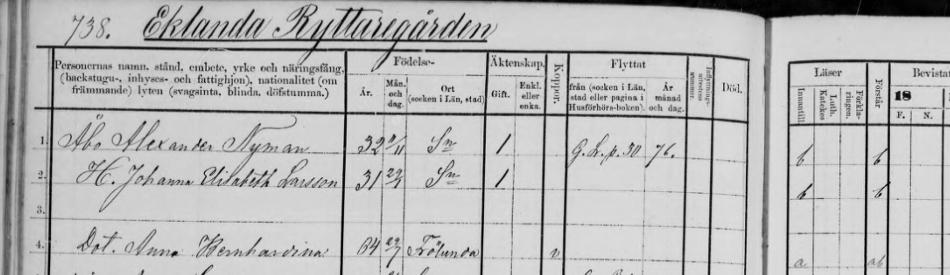 738. Eklanda Ryttaregården
Personernas namn, stånd, embete, yrke och näringsfång, (backstugu-, inhyses- och fattighjon), nationalitet (om främmande) lyten (svagsinta, blinda, döfstumma).
Födelse-
År.
Mån. och dag.
Ort (socken i Län, stad)
Äktenskap.
Gift.
Enkl. eller enka.
Koppor.
Flyttat
från (socken i Län, stad eller pagina i Husförhörs-boken).
År månad och dag.
Död.
Läser
Innantill
Luth. Katekes
Förkla-ringen.
Förstår
Bevista
18
F. N.
1. Åbo Alexander Nyman 32 Sn 1 G. L. p. 30 76. b b
2. H. Johanna Elisabeth Larsson 31 Sn 1 b b
3.
4. Dot. Anna Bernhardina 64 Frölunda v a ab